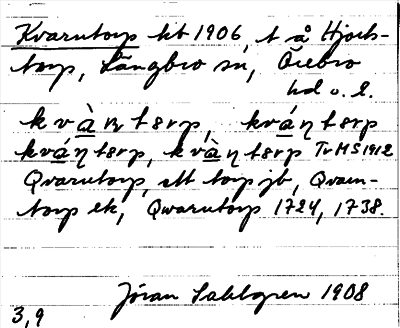 Kvarntorp hst 1906, t å Hjors-
torp, Längbro sn, Örebro
hd o. l.
kvàꞃtɵrp, kváηtɵrp
kváηtɵrp, kvàηtɵrp Tr MS 1912
Qvarntorp, ett torp jb, Qvarn-
torp ek, Qwarntorp 1724, 1738.
Jöran Sahlgren 1908
3,9